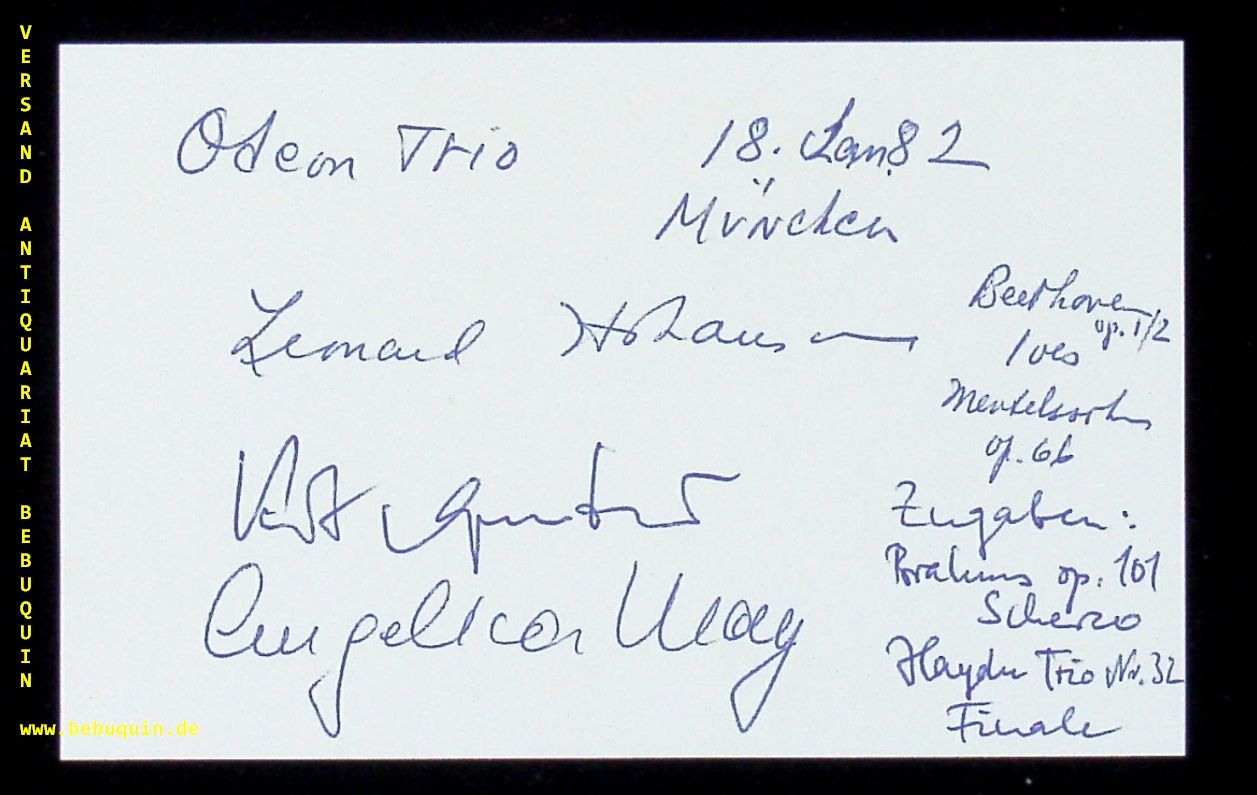 VERSAND ANTIQUARIAT BEBUQUIN
Odeon Trio
18. Jan. 82
München
Leonard Hokanson
Kurt Guntner
Angelica May
Beethoven
op. 1/2
Ives
Mendelssohn
op. 66
Zugaben:
Brahms op. 101
Scherzo
Haydn Trio Nr. 32
Finale
www.bebuquin.de